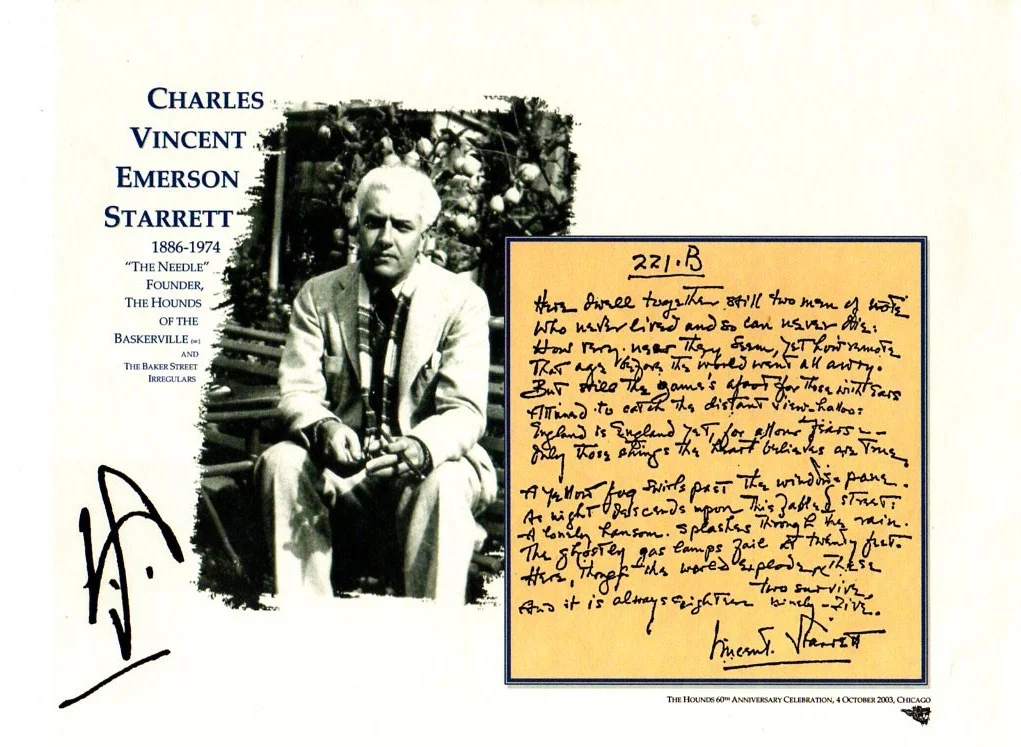 CHARLES
VINCENT
EMERSON
STARRETT
1886-1974
"THE NEEDLE"
FOUNDER,
THE HOUNDS
OF THE
BASKERVILLE (sic)
AND
THE BAKER STREET
IRREGULARS
221.B
Here dwell together still two men of note
Who never lived and so can never die:
How very near they seem, yet how remote
That age before the world went all awry.
But still the game's afoot for those with ears
Attuned to catch the distant view-halloo:
England is England yet, for all our fears—
Only those things the heart believes are true.
A yellow fog swirls past the window-pane
As night descends upon this fabled street:
A lonely hansom splashes through the rain.
The ghostly gas lamps fail at twenty feet.
Here, though the world explode, these
two survive,
And it is always eighteen ninety-five.
Vincent Starrett
THE HOUNDS 60TH ANNIVERSARY CELEBRATION, 4 OCTOBER 2003, CHICAGO